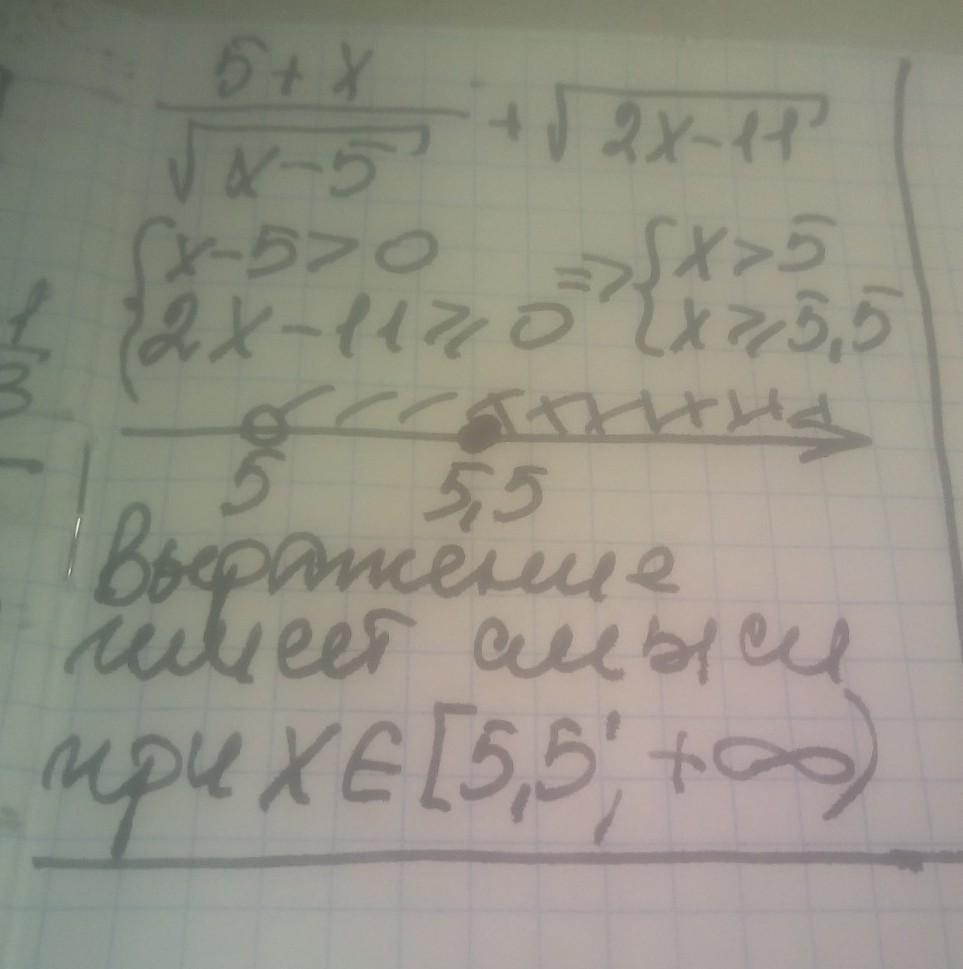 5+x
√x-5 + √2x-11
{x-5>0 => {x>5
{2x-11⩾0 {x⩾5,5
5 5,5
Выражение
имеет смысл
при x∈[5,5; +∞)
1
3